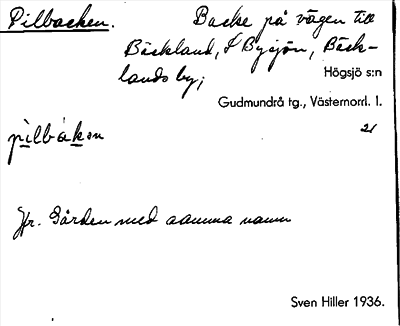 Pilbacken. Backe på vägen till
Bäckland, S Bysjön, Bäck-
lands by;
Högsjö s:n
Gudmundrå tg., Västernorrl. l.
21
pilbàken
Jfr. Gården med samma namn
Sven Hiller 1936.